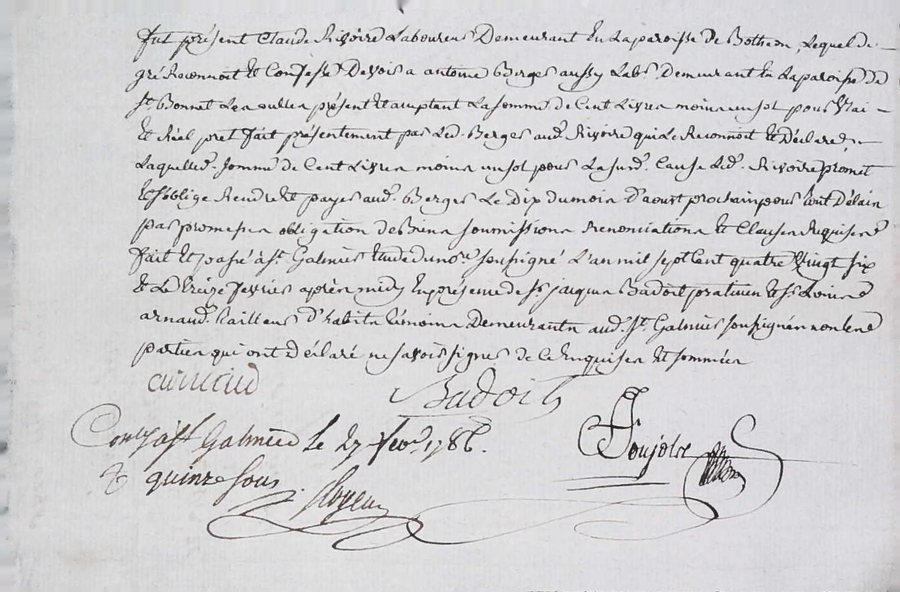 fut présent Claude Rivoire Laboureur Demeurant En Laparoisse de Botheon, Lequel de
gré Reconnoit Et Confesse Devoir a antoine Berger aussy Labr Demeurant En Laparoisse de
St Bonnet Les oulles présent Et acceptant Lasomme de Cent Livres moins un sol pour Vrai
Et Réel pret fait présentement par Led. Berger aud. Rivoire qui Le Reconnoit Et Déclare,
Laquelle Somme de Cent Livres moins un sol pour Lasusd. Cause Led. Rivoire promet
Et soblige Rendre Et payer aud. Berger Le Dix du mois D'aoust prochain pour tout Délain
par promesses obligation de Biens soumissions Renonciations Et Clauses Requises
fait Et passé à St Galmier Etude du nore soussigné L'an mil sept Cent quatre Vingt six
Et Le treize fevrier après midy En présence de Sr jacques Badoit praticien Et Sr
arnaud tailleur D'habits témoins Demeurants aud. St Galmier soussignés non Les
parties qui ont déclaré ne savoir signer de ce Enquises Et sommées
arnaud
Badoit
Conlé à St Galmier le 27 fevr 1786.
quinze sous.